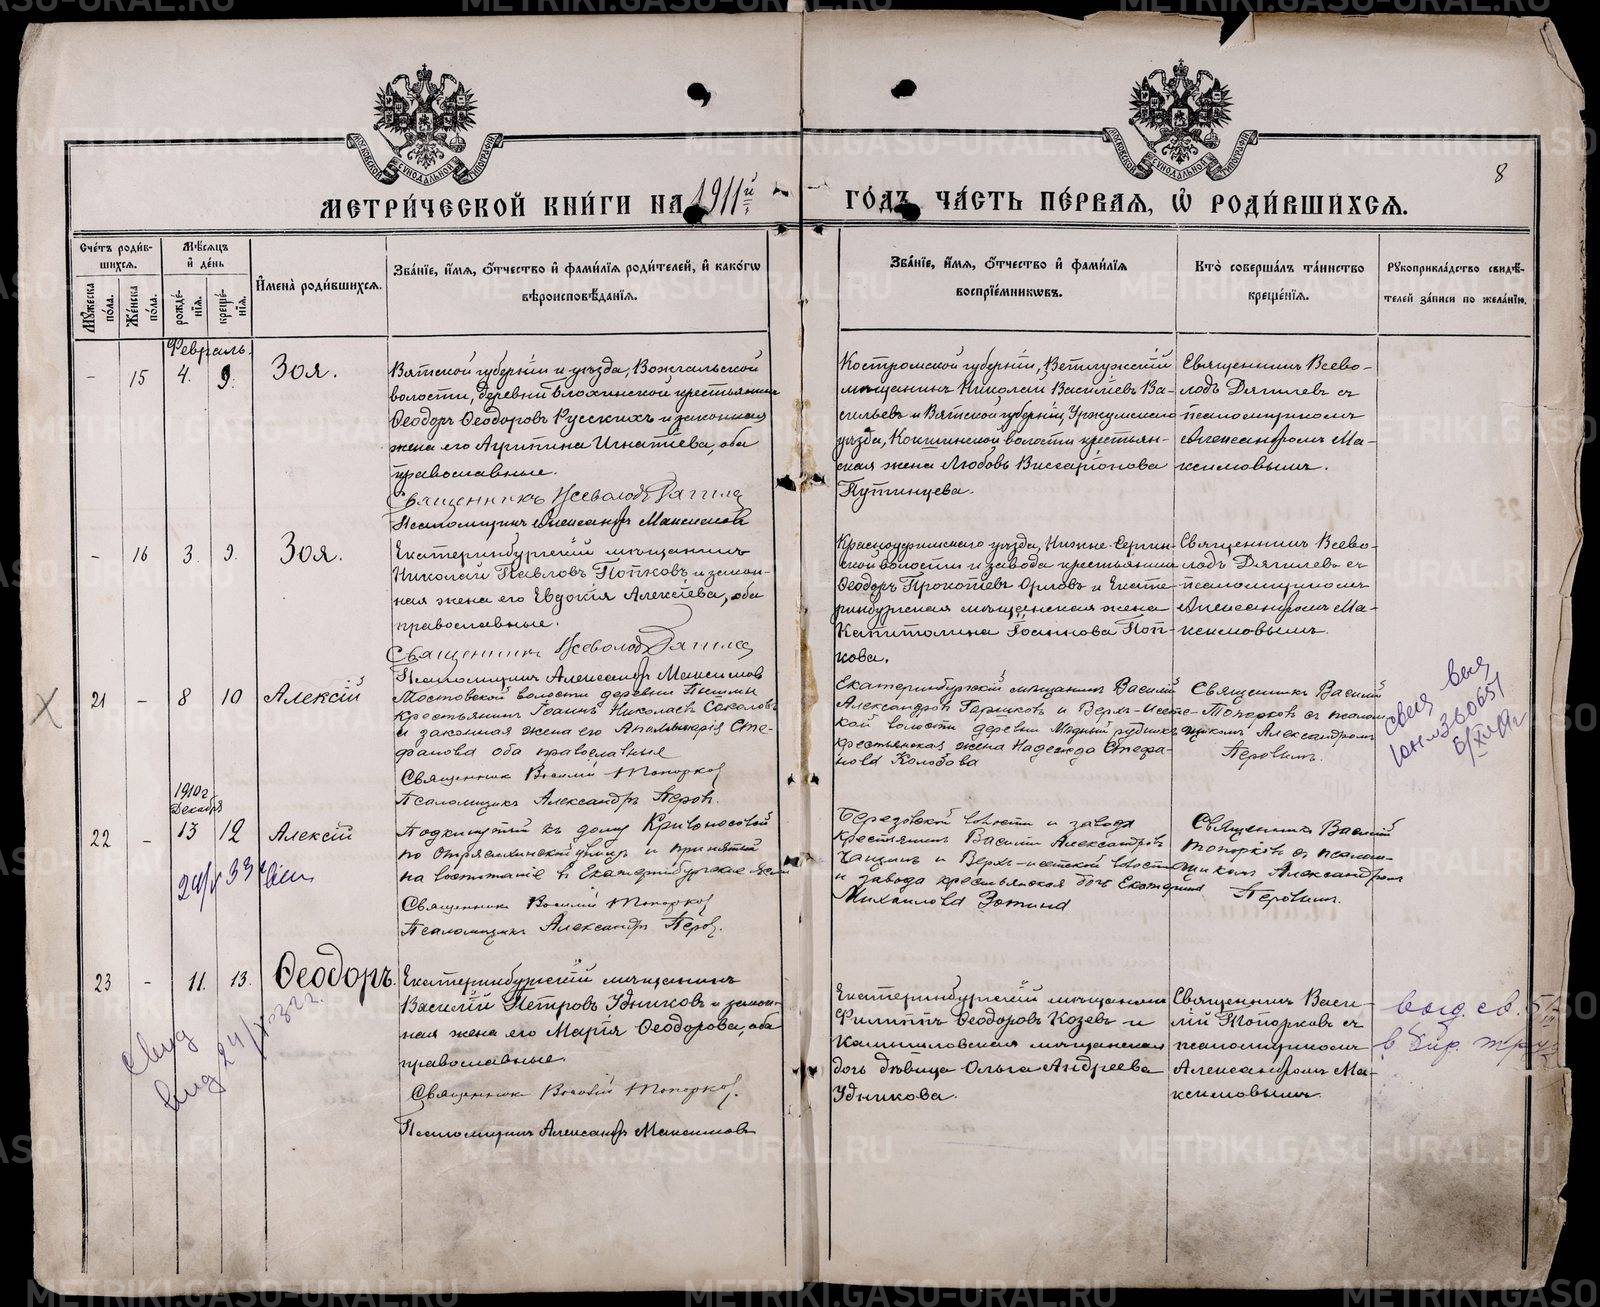 МОСКОВСКОЙ СѴНОДАЛЬНОЙ ТИПОГРАФІИ
МОСКОВСКОЙ СѴНОДАЛЬНОЙ ТИПОГРАФІИ
8
МЕТРИ́ЧЕСКОЙ КНИ́ГИ НА 1911й ГО́ДЪ, ЧА́СТЬ ПЕ́РВАЯ, Ѡ РОДИ́ВШИХСЯ.
Сче́тъ роди́вшихся.
Мѣ́сяцъ и де́нь
Имена̀ роди́вшихся.
Зва́нїе, и́мя, ѻ́тчество и фами́лїя роди́телей, и како́гѡ вѣроисповѣ́данїя.
Зва́нїе, и́мя, ѻ́тчество и фами́лїя воспрїе́мникѡвъ.
Кто̀ соверша́лъ та́инство креще́нїя.
Рꙋкоприкла́дство свидѣ́телей за́писи по жела́нїю.
Мꙋ́жеска по́ла.
Же́нска по́ла.
рожде́нїя.
креще́нїя.
Февраль.
- 15 4. 9. Зоя.
Вятской губерніи и уѣзда, Вожгальской
волости, деревни Блохинской крестьянинъ
Ѳеодоръ Ѳеодоровъ Русскихъ и законная
жена его Агрипина Игнатіева, оба
православные.
Священникъ Всеволодъ Дягилев
Псаломщикъ Александръ Максимовъ
Костромской губерніи, Ветлужскій
мѣщанинъ Николай Василіевъ Ва-
сильевъ и Вятской губерніи, Уржумскаго
уѣзда, Кокшинской волости крестьян-
ская жена Любовь Виссаріонова
Путинцева.
Священникъ Всево-
лодъ Дягилевъ съ
псаломщикомъ
Александромъ Ма-
ксимовымъ.
- 16 3. 9. Зоя.
Екатеринбургскій мѣщанинъ
Николай Павловъ Попковъ и закон-
ная жена его Евдокія Алексіева, оба
православные.
Священникъ Всеволод Дягилев
Псаломщикъ Александръ Максимов
Красноуфимскаго уѣзда, Нижне-Сергин-
ской волости и завода крестьянинъ
Ѳеодоръ Прокопіевъ Орловъ и Екате-
ринбургская мѣщанская жена
Капитолина Іоаннова Поп-
кова.
Священникъ Всево-
лодъ Дягилевъ съ
псаломщикомъ
Александромъ Ма-
ксимовымъ.
X 21 - 8 10 Алексій
Мостовской волости деревни Пышмы
Крестьянинъ Іоаннъ Николаевъ Соколовъ
и законная жена его Аполлинарія Сте-
фанова оба православные
Священник Василій Топорков
Псаломщикъ Александръ Перов.
Екатеринбургскій мѣщанинъ Василій
Александров и Верх-Исетс-
кой волости деревни Мѣдный рудникъ
крестьянская жена Надежда Стефа-
нова Колобова
Священникъ Василій
Топорковъ съ псалом-
щикомъ Александромъ
Перовымъ.
1910 г
Декабря
22 - 13 12 Алексій
Подкинутый къ дому Кривоносовой
по улицѣ и принятой
на воспитаніе в Екатеринбургские Ясли
Священникъ Василій Топорков
Псаломщикъ Александръ Перов.
Березовской волости и завода
Крестьянинъ Василій Александровъ
и Верх-исетской волости
и завода крестьянская дочь Екатерина
Михаилова
Священникъ Василій
Топорковъ съ псалом-
щикомъ Александром
Перовымъ.
23 - 11. 13. Ѳеодоръ.
Екатеринбургскій мѣщанинъ
Василій Петровъ Удниковъ и закон-
ная жена его Марія Ѳеодорова, оба
православные.
Священник Василій Топорков.
Псаломщикъ Александръ Максимовъ
Екатеринбургскій мѣщанинъ
Филиппъ Ѳеодоровъ Козевъ и
Камышловская мѣщанская
дочь дѣвица Ольга Андреева
Удникова.
Священникъ Васи-
лій Топорковъ съ
псаломщикомъ
Александромъ Ма-
ксимовымъ.
METRIKI.GASO-URAL.RU